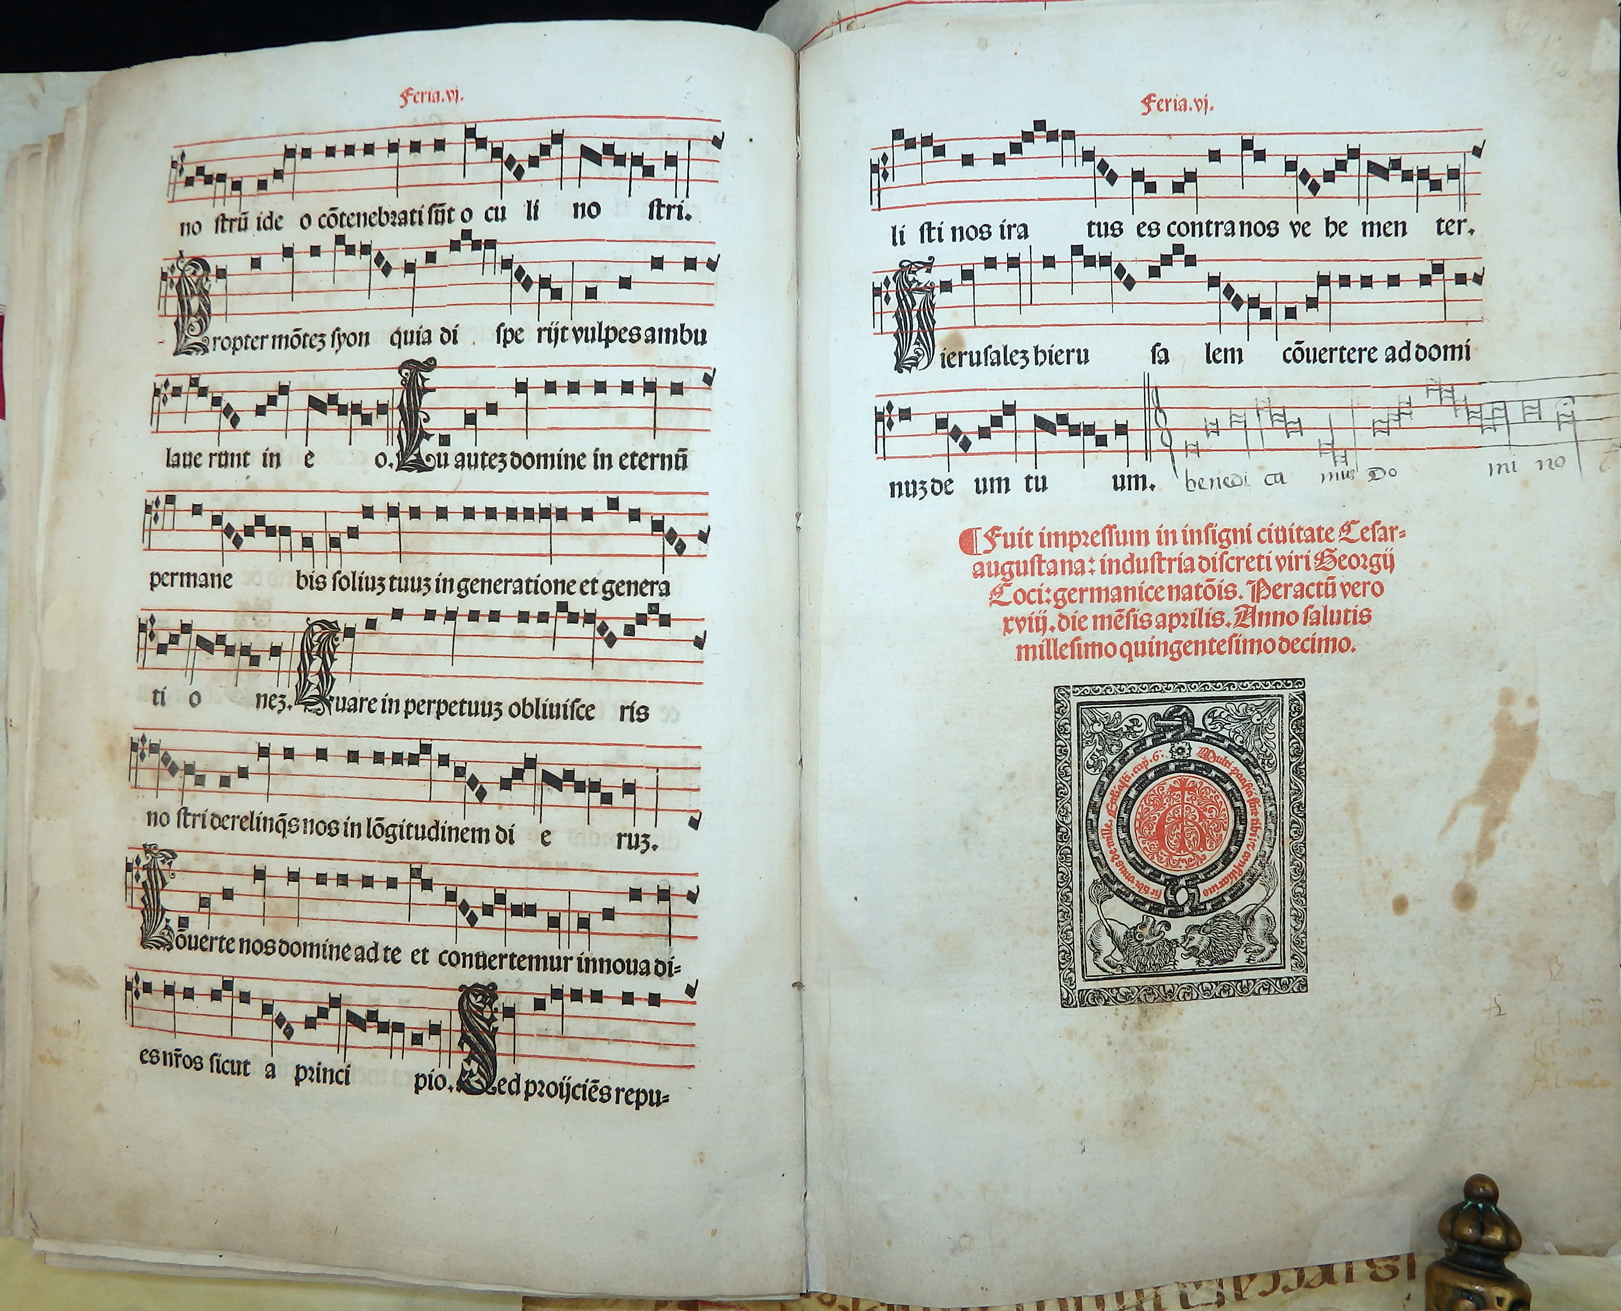 Feria.vj.
no ſtrū ide o cōtenebrati ſūt o cu li no ſtri.
Propter mōteʒ ſyon quia di ſpe rijt vulpes ambu
laue runt in e o. Tu auteʒ domine in eternū
permane bis ſoliuʒ tuuʒ in generatione et genera
ti o neʒ. Quare in perpetuuʒ obliuiſce ris
no ſtri derelinq̄s nos in lōgitudinem di e ruʒ.
Cōuerte nos domine ad te et conuertemur innoua di⸗
es nr̄os ſicut a princi pio. Sed proijciēs repu⸗
Feria.vj.
li ſti nos ira tus es contra nos ve he men ter.
Hieruſaleʒ hieru ſa lem cōuertere ad domi
nuʒ de um tu um. benedi ca mus Do mi no
¶Fuit impreſſum in inſigni ciuitate Ceſar⸗
auguſtana: induſtria diſcreti viri Georgij
Coci: germanice natōis. Peractū vero
xviij. die mēſis aprilis. Anno ſalutis
milleſimo quingenteſimo decimo.